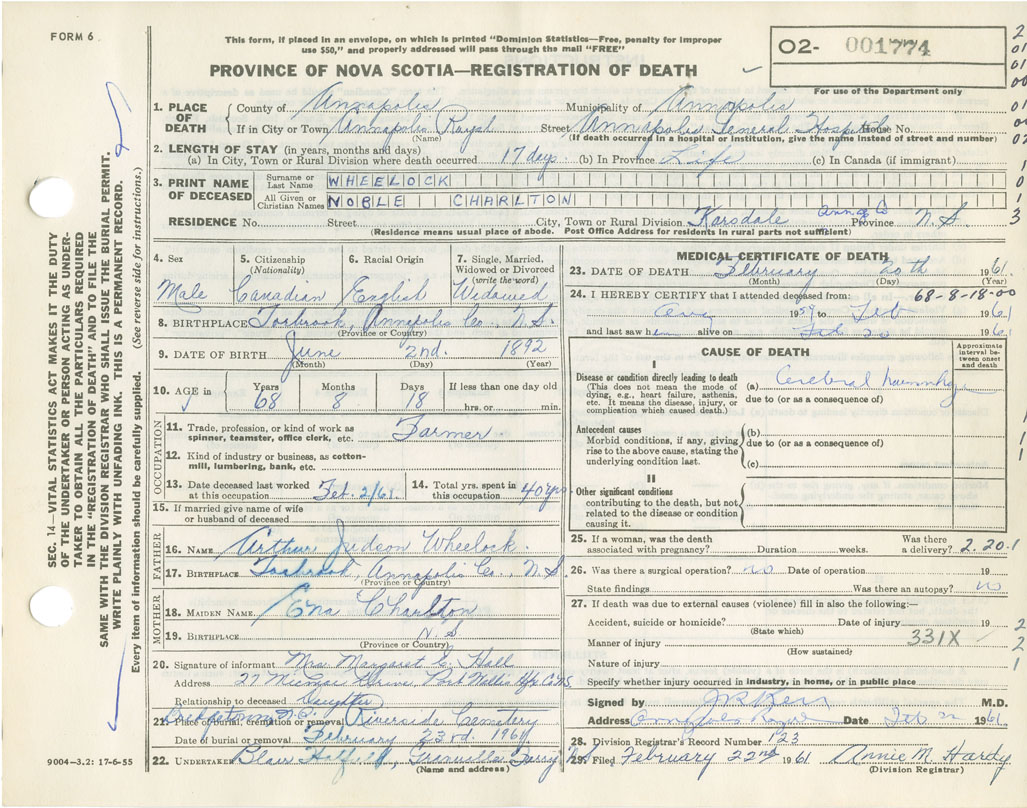 FORM 6
This form, if placed in an envelope, on which is printed "Dominion Statistics—Free, penalty for improper
use $50," and properly addressed will pass through the mail "FREE"
O2- 001774
For use of the Department only
PROVINCE OF NOVA SCOTIA—REGISTRATION OF DEATH
SEC. 14—VITAL STATISTICS ACT MAKES IT THE DUTY
OF THE UNDERTAKER OR PERSON ACTING AS UNDER-
TAKER TO OBTAIN ALL THE PARTICULARS REQUIRED
IN THE "REGISTRATION OF DEATH" AND TO FILE THE
SAME WITH THE DIVISION REGISTRAR WHO SHALL ISSUE THE BURIAL PERMIT.
WRITE PLAINLY WITH UNFADING INK. THIS IS A PERMANENT RECORD.
Every item of information should be carefully supplied. (See reverse side for instructions.)
1. PLACE OF DEATH County of Annapolis Municipality of Annapolis
If in City or Town Annapolis Royal Street Annapolis General Hospital House No.
(Name) (If death occurred in a hospital or institution, give the name instead of street and number)
2. LENGTH OF STAY (in years, months and days)
(a) In City, Town or Rural Division where death occurred 17 days (b) In Province Life (c) In Canada (if immigrant)
3. PRINT NAME OF DECEASED
Surname or Last Name WHEELOCK
All Given or Christian Names NOBLE CHARLTON
RESIDENCE No. Street City, Town or Rural Division Karsdale Anna Co Province N.S
(Residence means usual place of abode. Post Office Address for residents in rural parts not sufficient)
4. Sex Male
5. Citizenship (Nationality) Canadian
6. Racial Origin English
7. Single, Married, Widowed or Divorced (write the word) Widowed
8. BIRTHPLACE Torbrook, Annapolis Co., N.S.
(Province or Country)
9. DATE OF BIRTH June 2nd. 1892
(Month) (Day) (Year)
10. AGE in Years 68 Months 8 Days 18 If less than one day old
hrs. or min.
OCCUPATION
11. Trade, profession, or kind of work as spinner, teamster, office clerk, etc. Farmer
12. Kind of industry or business, as cotton-mill, lumbering, bank, etc.
13. Date deceased last worked at this occupation Feb. 2/61.
14. Total yrs. spent in this occupation 40 yrs.
15. If married give name of wife or husband of deceased
FATHER
16. NAME Arthur Judson Wheelock.
17. BIRTHPLACE Torbrook, Annapolis Co., N.S
(Province or Country)
MOTHER
18. MAIDEN NAME Ena Charlton
19. BIRTHPLACE N.S
(Province or Country)
20. Signature of informant Mrs. Margaret C. Hall
Address 27 Micmac Drive, Port Wallis Hfx Co N.S.
Relationship to deceased daughter
21. Place of burial, cremation or removal Bridgetown N.S. Riverside Cemetery
Date of burial or removal February 23rd. 1961
22. UNDERTAKER Blair Hatfield, Granville Ferry N.S.
(Name and address)
9004—3.2: 17-6-55
MEDICAL CERTIFICATE OF DEATH
23. DATE OF DEATH February 20th 1961.
(Month) (Day)
24. I HEREBY CERTIFY that I attended deceased from: 68-8-18-00
Aug 1959 to Feb 1961
and last saw him alive on Feb 20 1961
CAUSE OF DEATH
Approximate interval between onset and death
I
Disease or condition directly leading to death
(This does not mean the mode of dying, e.g., heart failure, asthenia, etc. It means the disease, injury, or complication which caused death.)
(a) Cerebral haemorrhage
due to (or as a consequence of)
Antecedent causes
Morbid conditions, if any, giving rise to the above cause, stating the underlying condition last.
(b)
due to (or as a consequence of)
(c)
II
Other significant conditions
contributing to the death, but not related to the disease or condition causing it.
25. If a woman, was the death associated with pregnancy? Duration weeks. Was there a delivery? 2.20.1
26. Was there a surgical operation? no Date of operation 19
State findings Was there an autopsy? no
27. If death was due to external causes (violence) fill in also the following:—
Accident, suicide or homicide? Date of injury 19
(State which)
Manner of injury 331X
(How sustained)
Nature of injury
Specify whether injury occurred in industry, in home, or in public place
Signed by J R Kerr M.D.
Address Annapolis Royal Date Feb 22 1961.
28. Division Registrar's Record Number 123
29. Filed February 22nd 1961 Annie M. Hardy
(Division Registrar)